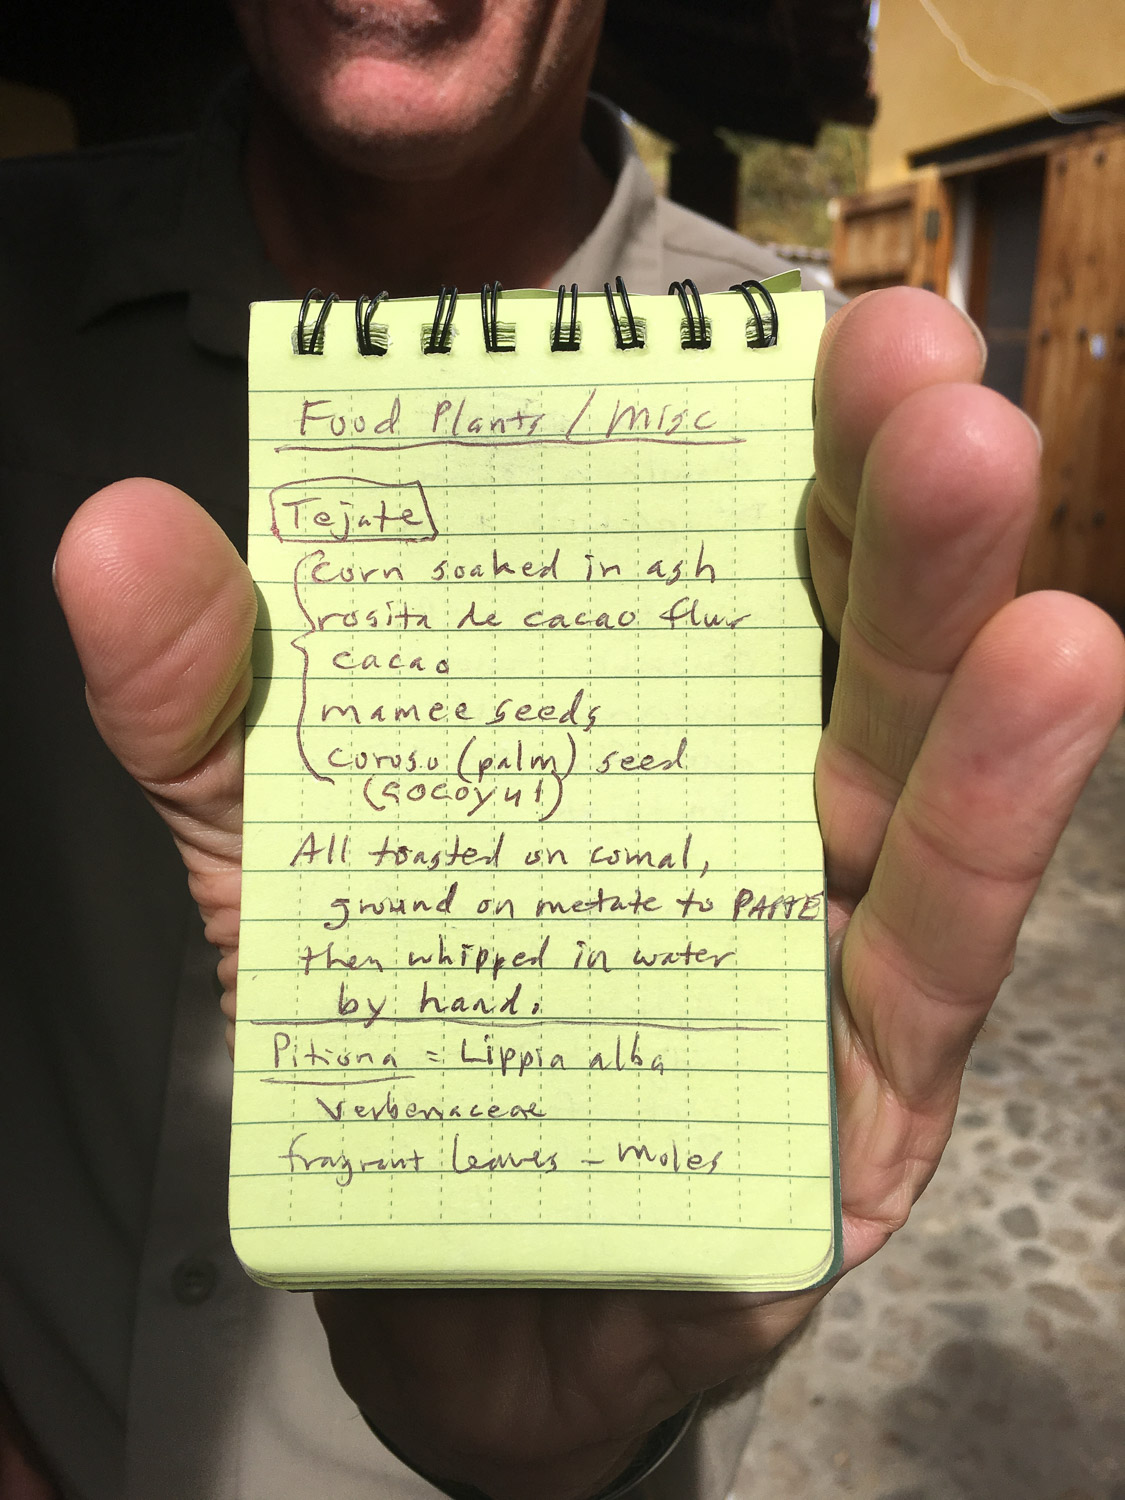 Food Plants / Misc
Tejate
corn soaked in ash
rosita de cacao flwr
cacao
mamee seeds
coroso (palm) seed
(cocoyul)
All toasted on comal,
ground on metate to PASTE
then whipped in water
by hand.
Pitiona = Lippia alba
Verbenaceae
fragrant leaves - moles